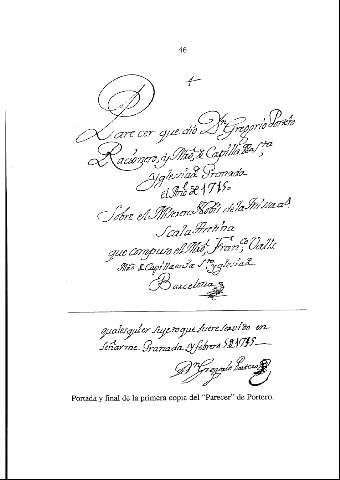 46
Parecer que dió Dn Gregorio Portero
Racionero, y Mao. de Capilla de Sta.
Yglesia de Granada
el Año de 1715
Sobre el Miserere Nobis de la Missa
Scala Aretina
que compuso el Mao. Franco. Valls
Mao. de Capilla en la Sta. Yglesia de
Barcelona
qualesquier sujeto que fuere servido en
señarme. Granada y febrero 5 de 1715
Dn Gregorio Portero
Portada y final de la primera copia del "Parecer" de Portero.